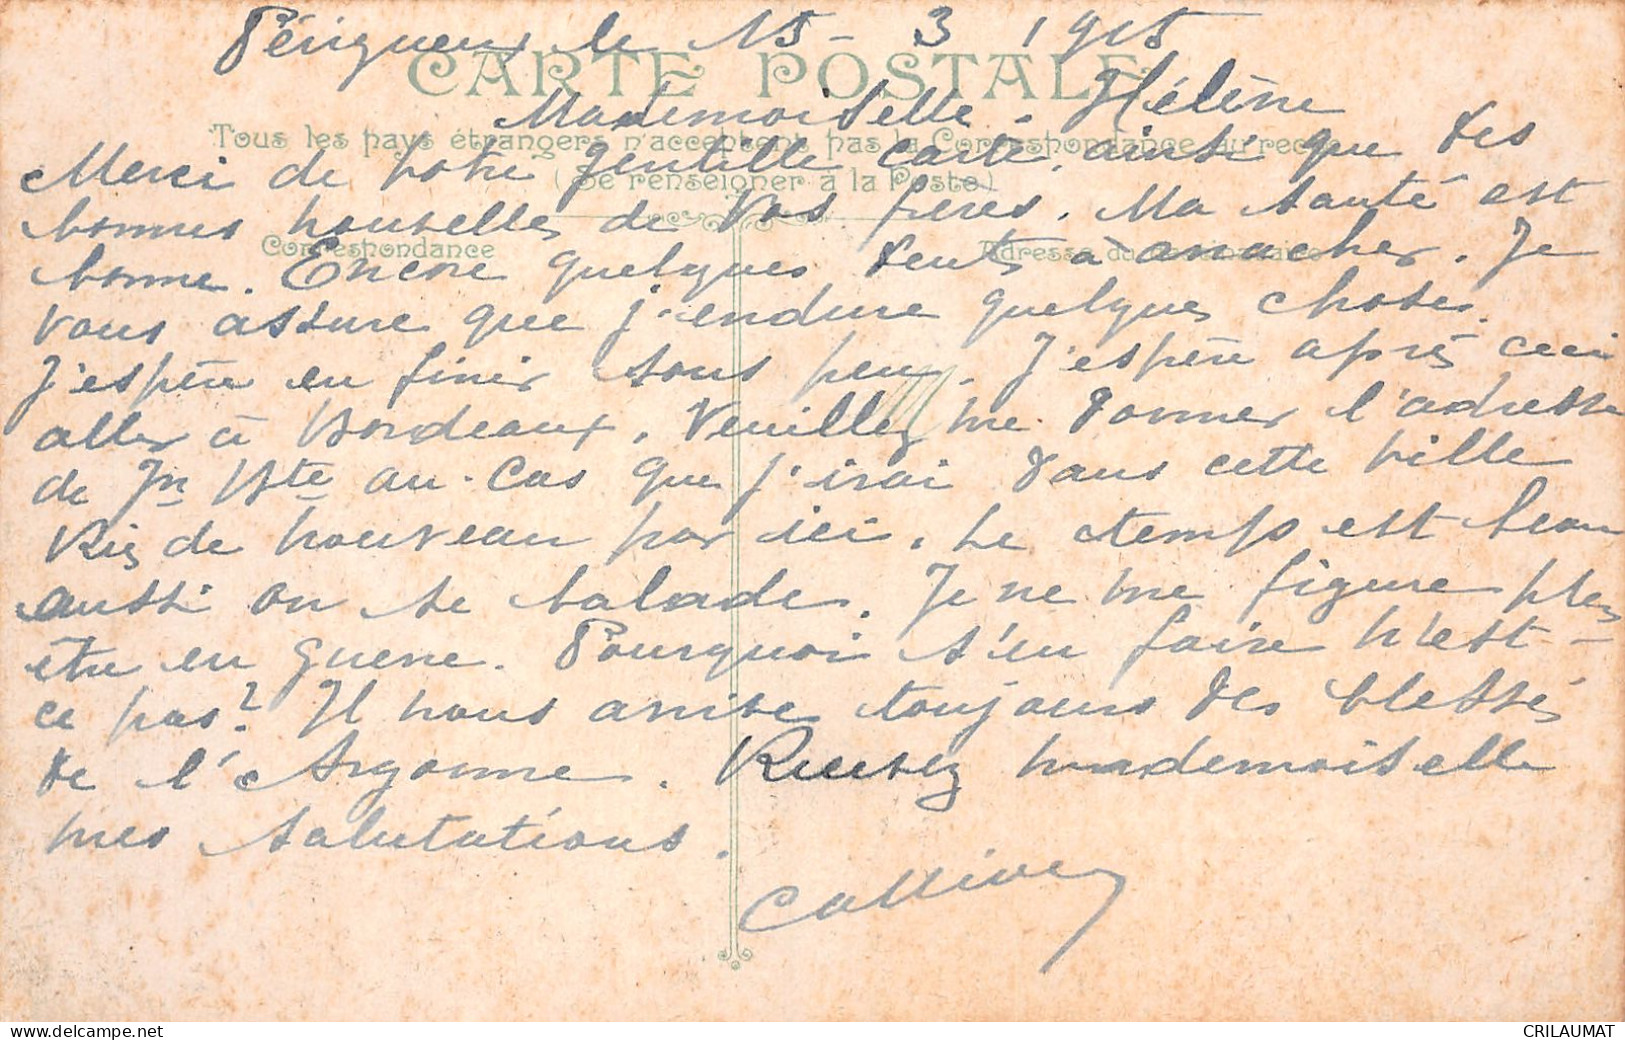 Périgueux le 15-3 1915
CARTE POSTALE
Mademoiselle. Hélène
Tous les pays étrangers n'acceptent pas la Correspondance au recto
(Se renseigner à la Poste)
Merci de votre gentille carte ainsi que des
bonnes nouvelles de vos frères. Ma santé est
Correspondance
Adresse du destinataire
bonne. Encore quelques dents à arracher. Je
vous assure que j'endure quelques choses.
J'espère en finir sous peu. J'espère après ceci
aller à Bordeaux. Veuillez me donner l'adresse
de Jn Bte au cas que j'irai dans cette ville
Rien de nouveau par ici. Le temps est beau
aussi on se balade. Je ne me figure plus
être en guerre. Pourquoi s'en faire n'est-
ce pas? Il nous arrive toujours des blessés
de l'Argonne. Recevez mademoiselle
mes salutations.
delcampe.net
CRILAUMAT